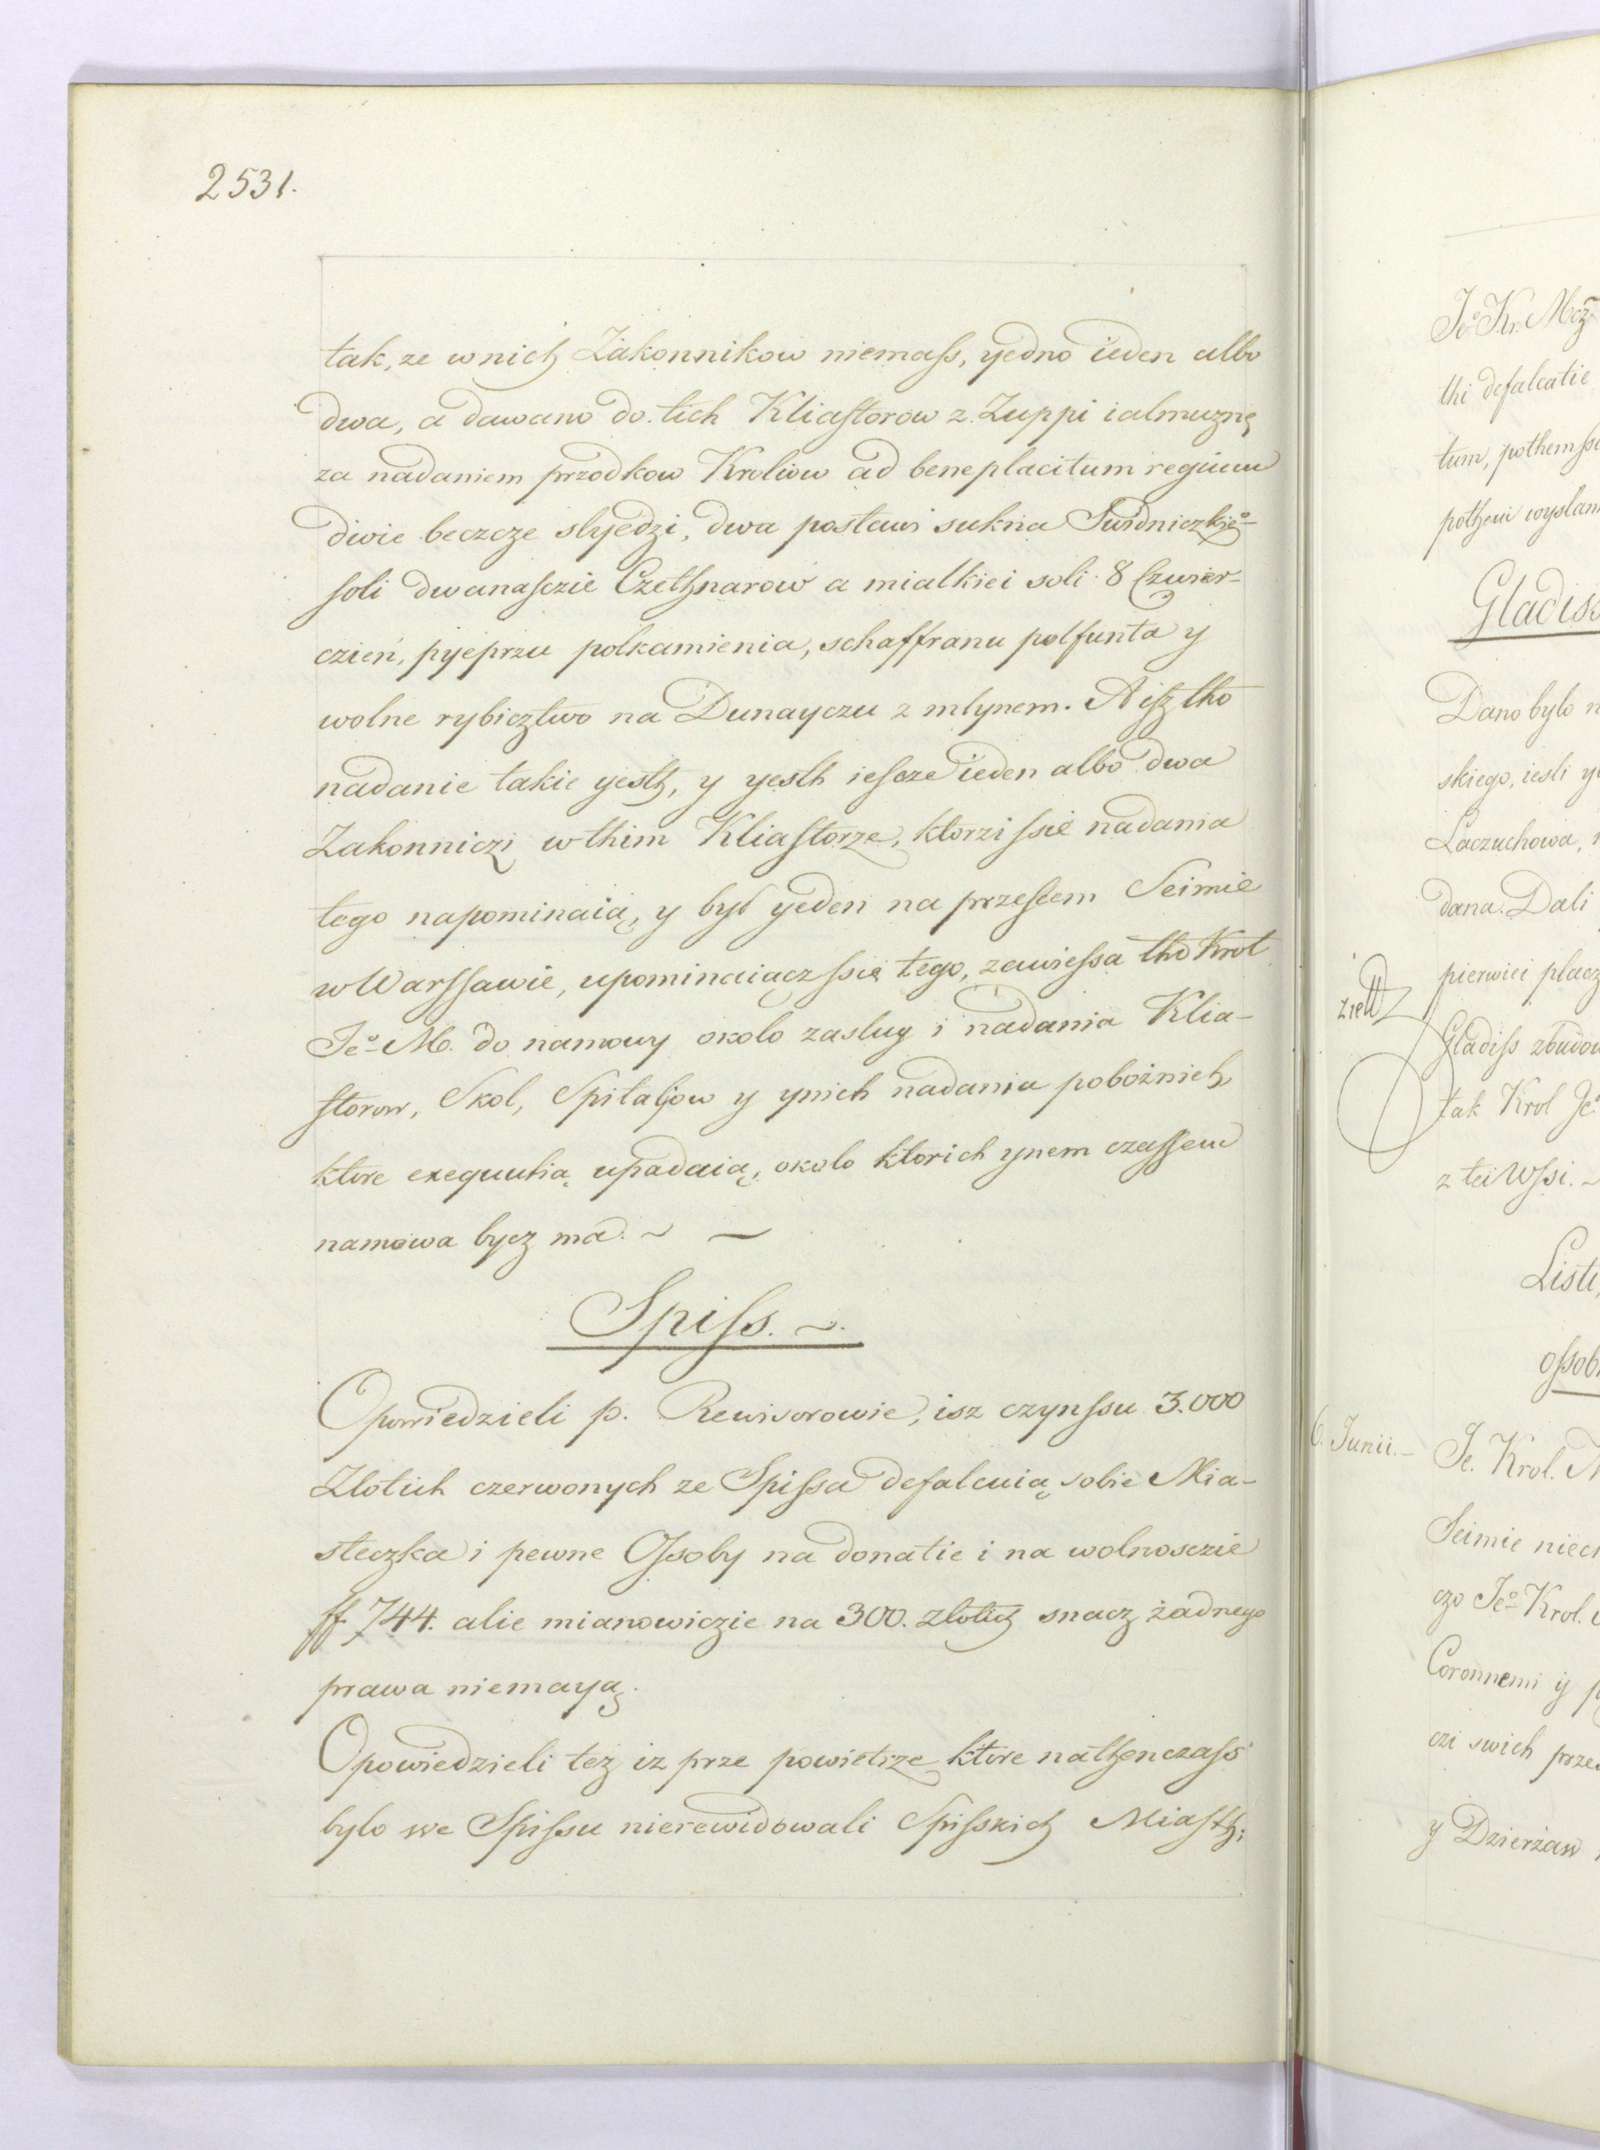 2531.
tak, ze wnich Zakonnikow niemass, yedno ieden albo
dwa, a dawano do tich Kliastorow z Zuppi ialmuznę
za nadaniem przodkow Kroliow ad beneplacitum regium
dwie beczcze slyedzi, dwa postawi sukna Swidniczkieo
soli dwanasczie Czethnarow a mialkiei soli 8 Czwier-
czień, pyeprzu polkamienia, schaffranu polfunta y
wolne rybicztwo na Dunayczu z mlynem. A isz tho
nadanie takie yesth, y yesth iescze ieden albo dwa
Zakonniczi w thim Kliastorze, ktorzi ssie nadania
tego napominaią, y był yeden na przesłem Seimie
w Warssawie, upominaiącz ssię tego, zawiessa tho Krol
Jeo M. do namowy okolo zaslug i nadania Klia-
storow, Skol, Spitaljow y ynich nadania pobożnich
ktore exequutią upadaią, okolo ktorich ynem czassem
namowa bycz ma. ~ ~
Spiss. ~.
Opowiedzieli p. Rewisorowie, isz czynssu 3.000
Zlotich czerwonych ze Spissa defalcuią sobie Mia-
steczka i pewne Ossoby na donatie i na wolnosczie
ff 744. alie mianowiczie na 300. zlotich snacz żadnego
prawa niemayą.
Opowiedzieli tez iz prze powietrze ktore nathenczass
bylo we Spissu nierewidowali Spisskich Miasth;
Jeo Kr. Mcz
thi defalcatie
tum, pothemssi
pothem wyslan
Gladiss
Dano bylo n
skiego, iesli y
Laczuchowa, n
dana. Dali
pierwiei placz
Gladiss zbudow
tak Krol Jeo
z tei Wssi. ~
Listi,
ossob
6. Junii. Je. Krol. M
Seimie niech
czo Jeo Krol.
Coronnemi ij p
czi swich prze
y Dzierżaw